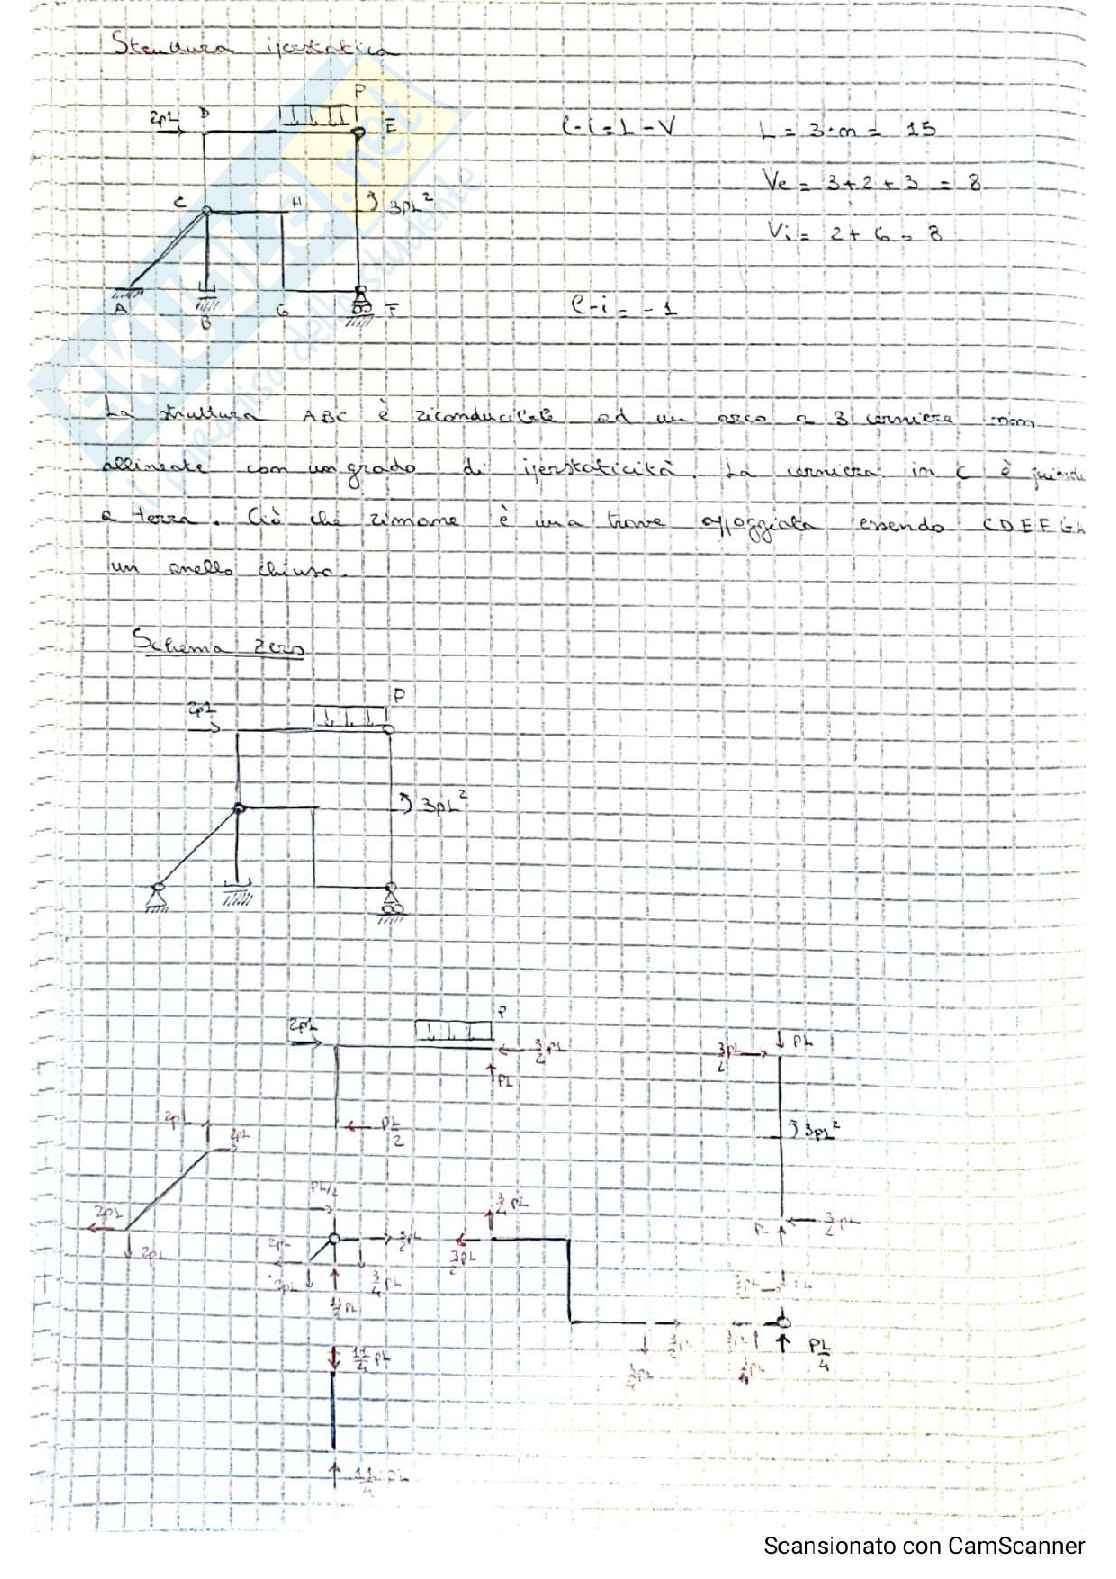 Struttura iperstatica
P
2pL D E
l-i = L-V L = 3·m = 15
Ve = 3+2+3 = 8
C H 3pL²
Vi = 2+6 = 8
A B G F
l-i = -1
La struttura ABC è riconducibile ad un arco a 3 cerniere non
allineate con un grado di iperstaticità. La cerniera in C è quindi
a terra. Ciò che rimane è una trave appoggiata essendo CDEFGH
un anello chiuso.
Schema zero
P
2pL
3pL²
P
2pL 3/2 pL 3/2 pL pL
pL
pL/2 3pL²
2pL 2pL
pL/2 3/4 pL
2pL 2pL 3/2 pL 3/2 pL 3/2 pL
2pL 3/4 pL
pL/4
11/4 pL
11/4 pL
Scansionato con CamScanner